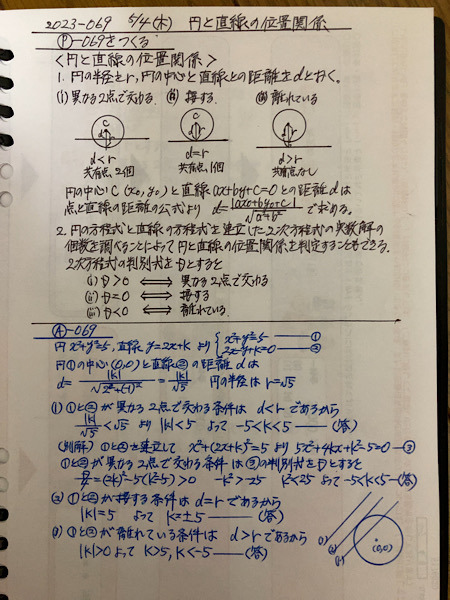 2023-069 5/4(木) 円と直線の位置関係
Ⓟ-069をつくる
<円と直線の位置関係>
1. 円の半径をr, 円の中心と直線との距離をdとおく。
(i) 異なる2点で交わる. (ii) 接する. (iii) 離れている
C C
d<r d=r d>r
共有点, 2個 共有点, 1個 共有点なし
円の中心C(x₀,y₀)と直線ax+by+c=0との距離dは
点と直線の距離の公式より d=|ax₀+by₀+c|/√a²+b² で求める.
2. 円の方程式と直線の方程式を連立した2次方程式の実数解の
個数を調べることによって円と直線の位置関係を判定することもできる.
2次方程式の判別式をDとすると
(i) D>0 ⟺ 異なる2点で交わる
(ii) D=0 ⟺ 接する
(iii) D<0 ⟺ 離れている.
Ⓐ-069
円x²+y²=5, 直線 y=2x+k より { x²+y²=5 ―① 2x-y+k=0 ―②
円①の中心(0,0)と直線②の距離dは
d=|k|/√2²+(-1)²=|k|/√5 円の半径は r=√5
(1) ①と②が異なる2点で交わる条件は d<rであるから
|k|/√5<√5 より |k|<5 よって -5<k<5―(答)
(別解) ①と②を連立して x²+(2x+k)²=5より 5x²+4kx+k²-5=0―③
①と②が異なる2点で交わる条件は③の判別式をDとすると
D/4=(2k)²-5(k²-5)>0 -k²>-25 k²<25 よって-5<k<5―(答)
(2) ①と②が接する条件は d=rであるから
|k|=5 よって k=±5―(答)
(3) ①と②が離れている条件は d>rであるから
|k|>0 よって k>5, k<-5―(答)
(0,0)